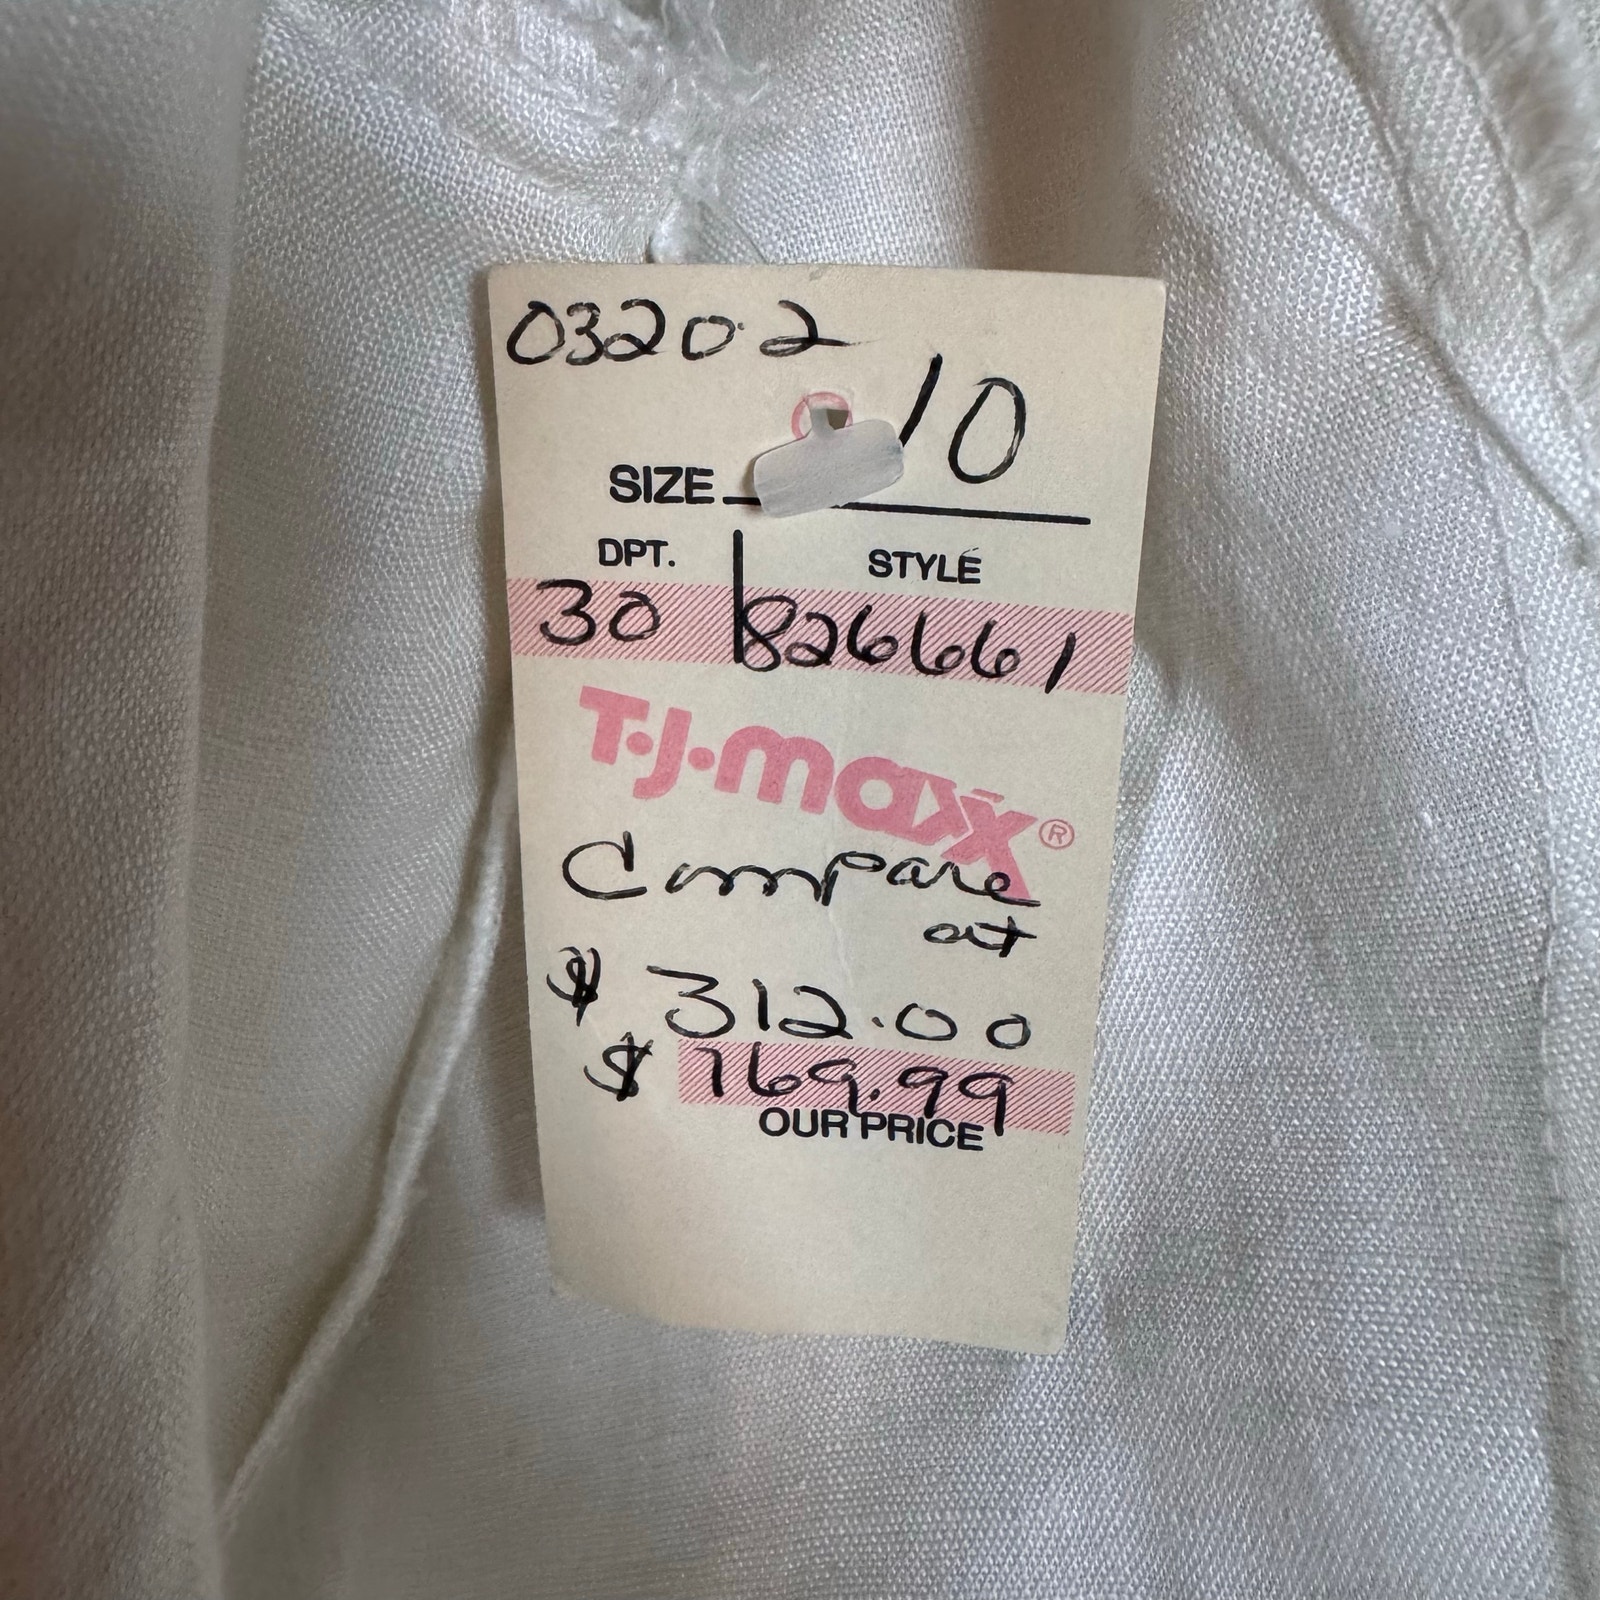 03202
10
SIZE
DPT. STYLE
30 826661
T.J.maxx®
Compare
at
$ 312.00
$ 169.99
OUR PRICE